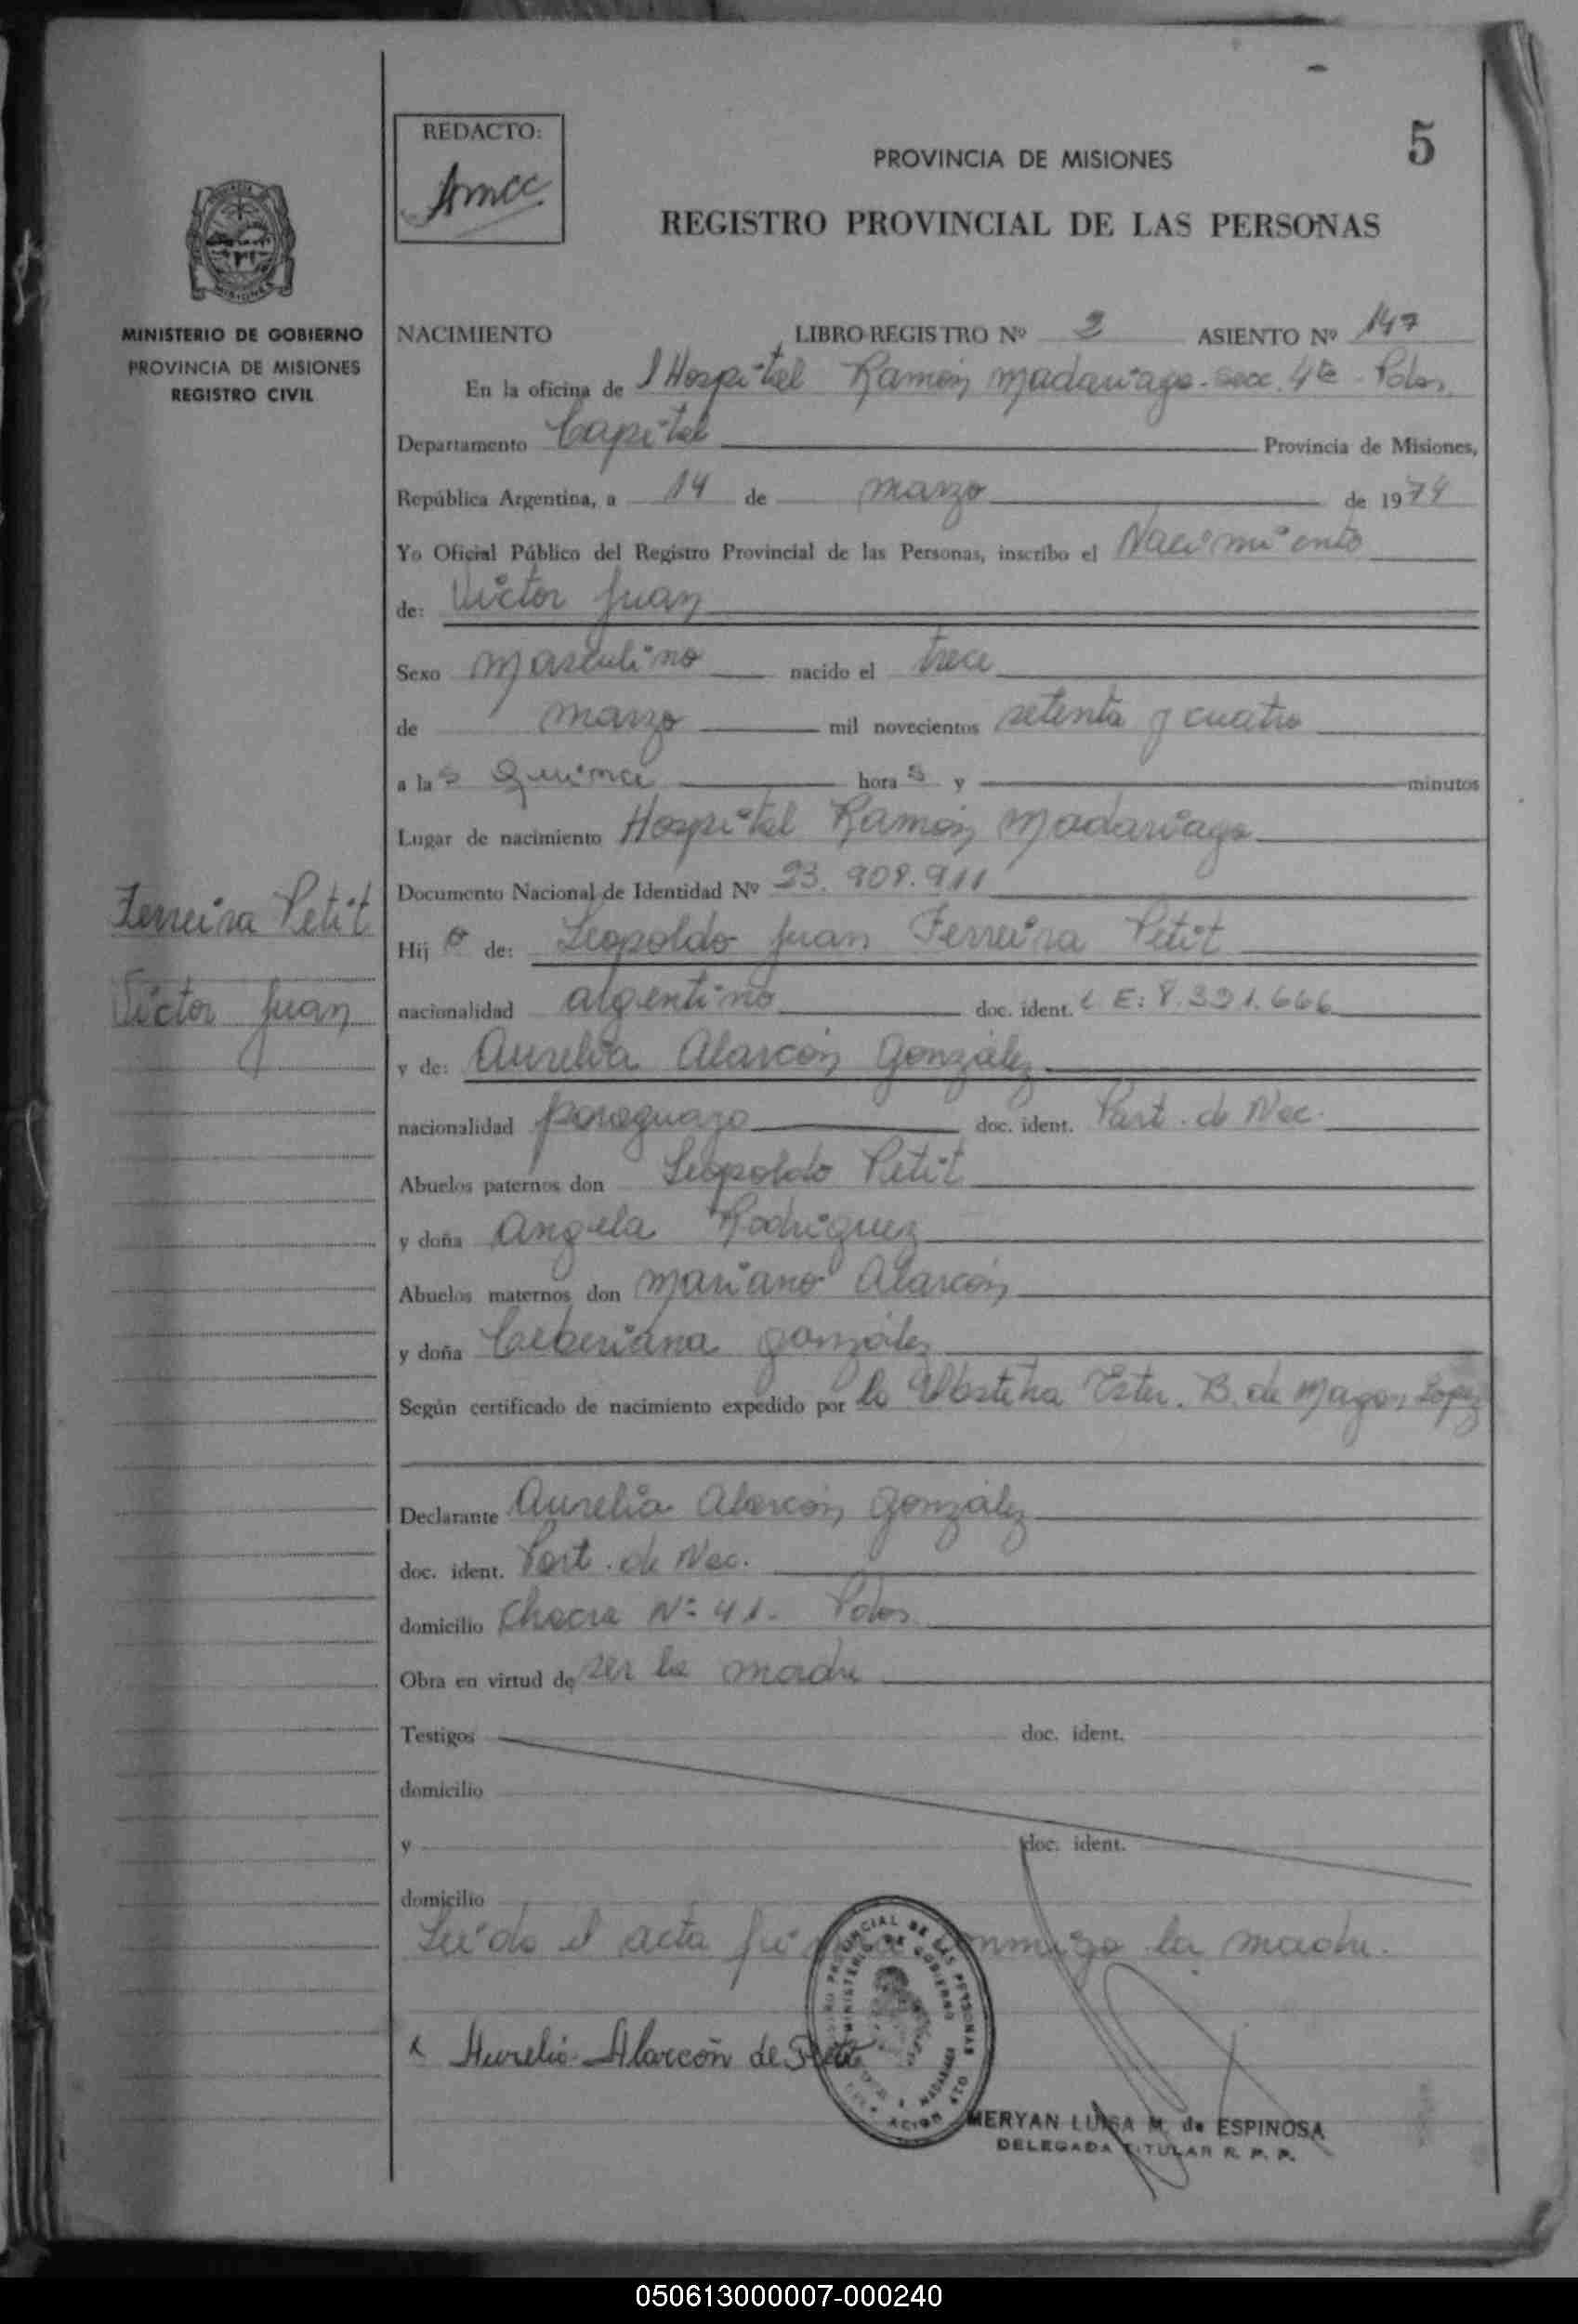 REDACTO:
Amcc
5
PROVINCIA DE MISIONES
REGISTRO PROVINCIAL DE LAS PERSONAS
MINISTERIO DE GOBIERNO
PROVINCIA DE MISIONES
REGISTRO CIVIL
NACIMIENTO LIBRO REGISTRO Nº 2 ASIENTO Nº 147
En la oficina de l Hospital Ramón Madariaga - secc. 4ta - Pdas.
Departamento Capital Provincia de Misiones,
República Argentina, a 14 de marzo de 1974
Yo Oficial Público del Registro Provincial de las Personas, inscribo el Nacimiento
de: Victor Juan
Sexo masculino nacido el trece
de marzo mil novecientos setenta y cuatro
a las Quince horas y minutos
Lugar de nacimiento Hospital Ramón Madariaga
Documento Nacional de Identidad Nº 23.908.911
Ferreira Petit
Hijo de: Leopoldo Juan Ferreira Petit
Victor Juan
nacionalidad argentino doc. ident. L E: 8.391.666
y de: Aurelia Alarcón González
nacionalidad paraguaya doc. ident. Part. de Nac.
Abuelos paternos don Leopoldo Petit
y doña Angela Rodriguez
Abuelos maternos don Mariano Alarcón
y doña Ceberiana González
Según certificado de nacimiento expedido por la Obstetra Ester. B. de Magan Lopez
Declarante Aurelia Alarcón González
doc. ident. Part. de Nac.
domicilio Chacra Nº 41. Pdas
Obra en virtud de ser la madre
Testigos doc. ident.
domicilio
y doc. ident.
domicilio
Leida el acta firma conmigo la madre.
x Aurelia Alarcón de Petit
MERYAN LUISA M. de ESPINOSA
DELEGADA TITULAR R. P. P.
050613000007-000240